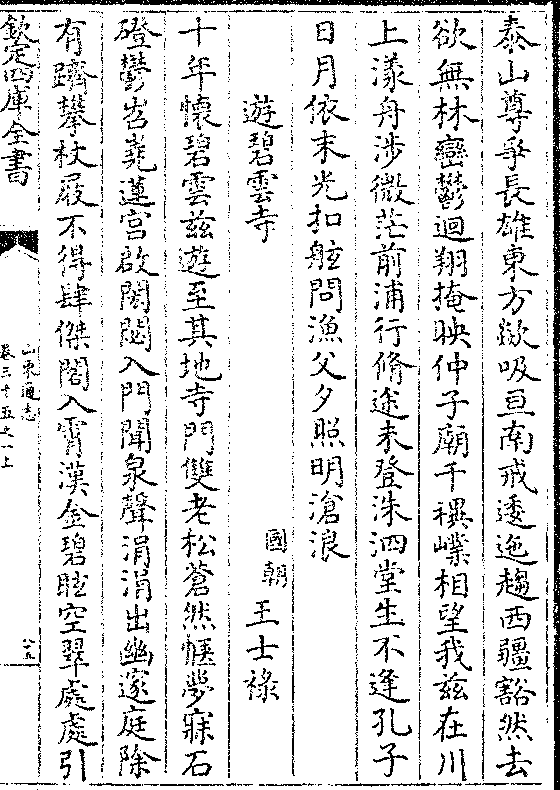 泰山尊爭長雄東方歘吸亘南戒逶迤趨西疆豁然去
欲無林巒鬱迴翔掩映仲子廟千禩㠎相望我茲在川
上漾舟涉微茫前浦行脩途未登洙泗堂生不逢孔子
日月依末光扣舷問漁父夕照明滄浪
遊碧雲寺
國朝 王士祿
十年懷碧雲茲遊至其地寺門雙老松蒼然愜夢寐石
磴鬱岧嶤蓮宮啟閎閟入門聞泉聲涓涓出幽邃庭除
有躋攀杖屐不得肆傑閣入霄漢金碧眩空翠處處引
欽定四庫全書
山東通志
卷三十五之一上
八五